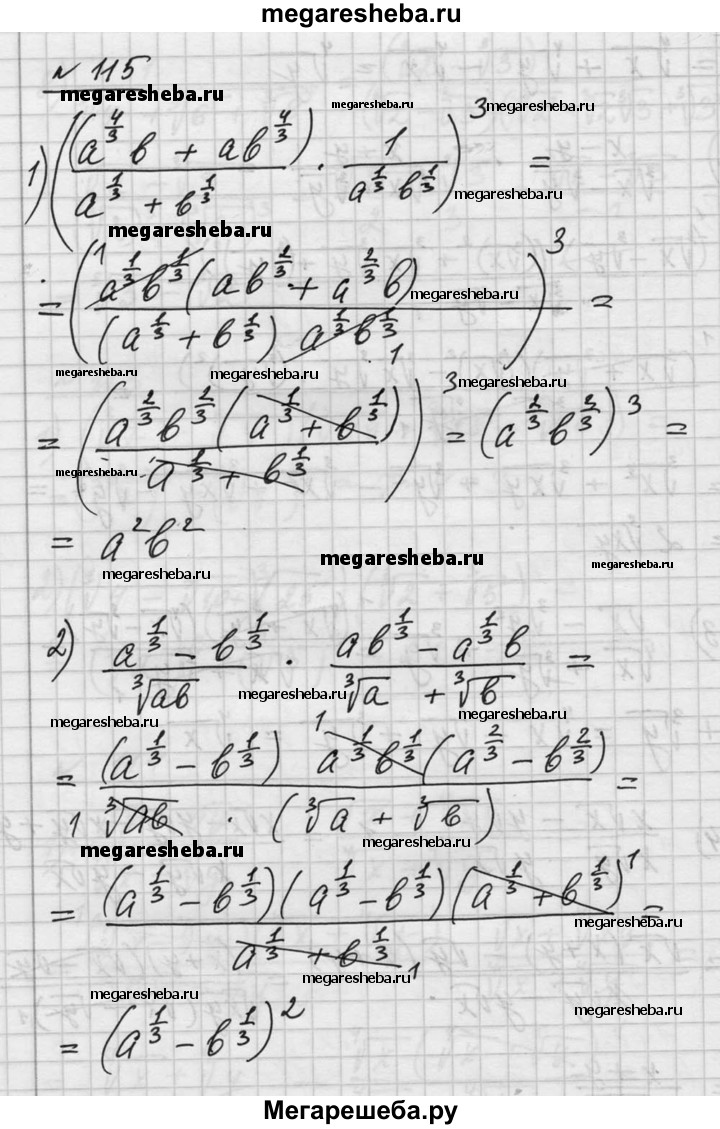 megaresheba.ru
№ 115
megaresheba.ru megaresheba.ru megaresheba.ru
1) ((a^{4/3} b + ab^{4/3}) / (a^{1/3} + b^{1/3}) · 1 / (a^{1/3} b^{1/3}))^3 =
megaresheba.ru
megaresheba.ru
= (a^{1/3} b^{1/3} (ab^{2/3} + a^{2/3} b) / ((a^{1/3} + b^{1/3}) a^{1/3} b^{1/3}))^3 =
megaresheba.ru
megaresheba.ru megaresheba.ru megaresheba.ru
= (a^{2/3} b^{2/3} (a^{1/3} + b^{1/3}) / (a^{1/3} + b^{1/3}))^3 = (a^{2/3} b^{2/3})^3 =
megaresheba.ru
= a^2 b^2
megaresheba.ru megaresheba.ru megaresheba.ru
2) (a^{1/3} - b^{1/3}) / ∛ab · (ab^{1/3} - a^{1/3} b) / (∛a + ∛b) =
megaresheba.ru megaresheba.ru megaresheba.ru
= (a^{1/3} - b^{1/3}) a^{1/3} b^{1/3} (a^{2/3} - b^{2/3}) / (∛ab · (∛a + ∛b)) =
megaresheba.ru megaresheba.ru
= (a^{1/3} - b^{1/3})(a^{1/3} - b^{1/3})(a^{1/3} + b^{1/3}) / (a^{1/3} + b^{1/3}) =
megaresheba.ru
megaresheba.ru
megaresheba.ru
= (a^{1/3} - b^{1/3})^2
megaresheba.ru
Мегарешеба.ру